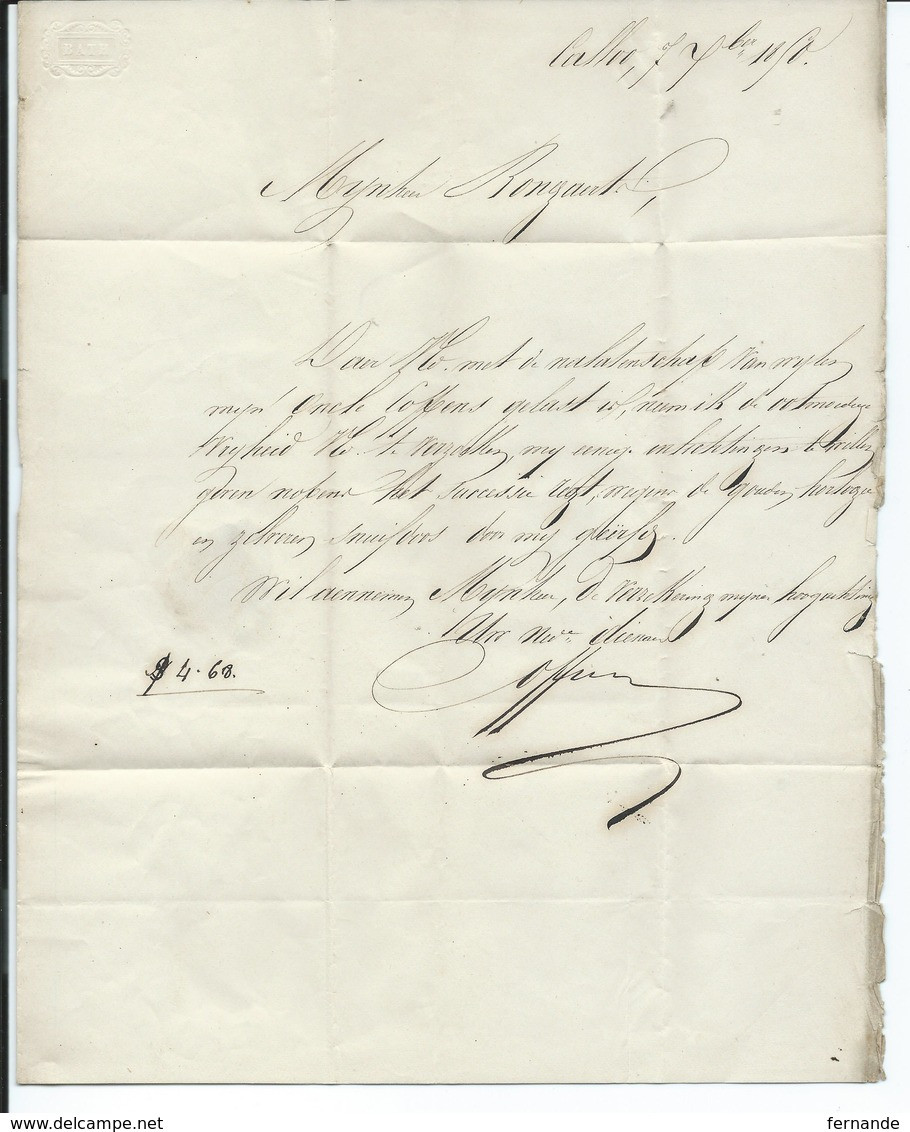 BATH
Calloo, 7 7ber 185
Mynheer Rongaert,
Daer UE. met de nalatenschap van wylen
myn Oncle Coppens gelast is, neem ik de ootmoedige
vryheid UE. te verzoeken, my eenige inlichtingen te willen
geven nopens het successie regt, wegens de gouden horlogie
en zilveren snuifdoos door my geërfd.
Wil aennemen, Mynheer, de verzekering myner hoogachting
Uw dienaer
Coppens
4.68.
fernande